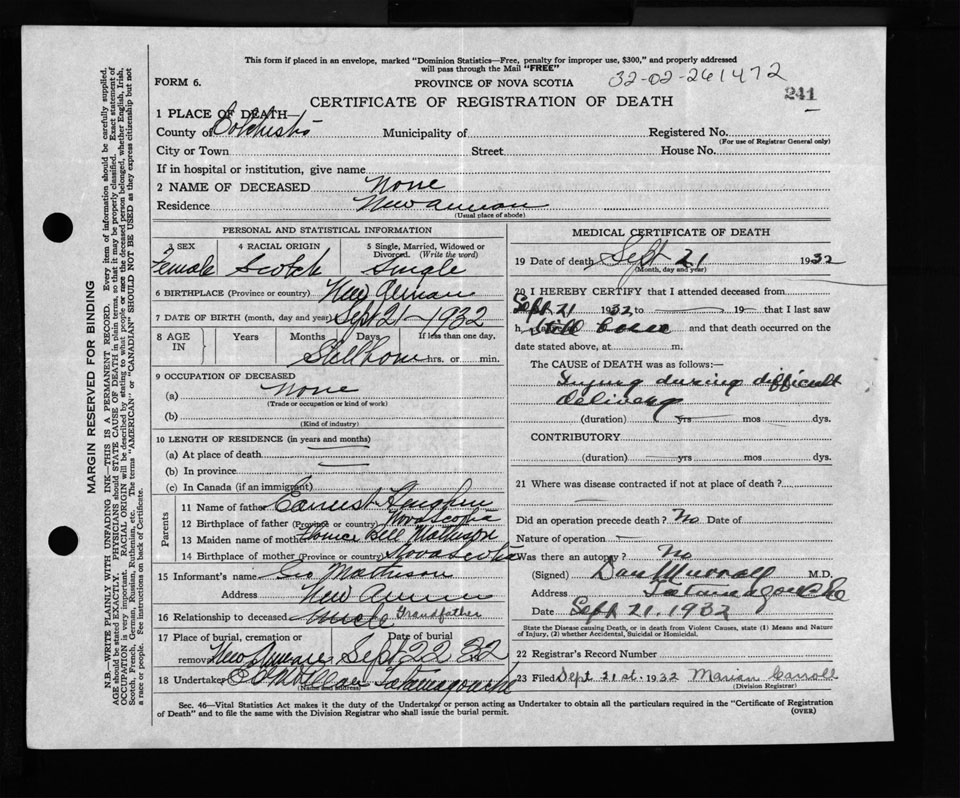 This form if placed in an envelope, marked "Dominion Statistics—Free, penalty for improper use, $300," and properly addressed
will pass through the Mail "FREE"
32-02-261472
FORM 6.
PROVINCE OF NOVA SCOTIA
241
CERTIFICATE OF REGISTRATION OF DEATH
1 PLACE OF DEATH—
County of Municipality of Registered No.
(For use of Registrar General only)
City or Town Street House No.
If in hospital or institution, give name
2 NAME OF DECEASED None
Residence New Annan
(Usual place of abode)
PERSONAL AND STATISTICAL INFORMATION
3 SEX 4 RACIAL ORIGIN 5 Single, Married, Widowed or Divorced. (Write the word)
Female Scotch Single
6 BIRTHPLACE (Province or country) New Annan
7 DATE OF BIRTH (month, day and year) Sept 21 - 1932
8 AGE IN Years Months Days If less than one day.
Stillborn hrs. or min.
9 OCCUPATION OF DECEASED
(a) None
(Trade or occupation or kind of work)
(b)
(Kind of industry)
10 LENGTH OF RESIDENCE (in years and months)
(a) At place of death
(b) In province
(c) In Canada (if an immigrant)
Parents
11 Name of father Earnest
12 Birthplace of father (Province or country) Nova Scotia
13 Maiden name of mother Bell
14 Birthplace of mother (Province or country) Nova Scotia
15 Informant's name Geo Matheson
Address New Annan
16 Relationship to deceased Uncle Grandfather
17 Place of burial, cremation or removal New Annan Date of burial Sept 22 32
18 Undertaker Tatamagouche
(Name and address)
MEDICAL CERTIFICATE OF DEATH
19 Date of death Sept 21 1932
(Month, day and year)
20 I HEREBY CERTIFY that I attended deceased from
Sept 21 1932 to — 19— that I last saw
h Still born and that death occurred on
date stated above, at m.
The CAUSE of DEATH was as follows:—
during difficult
delivery
(duration) yrs mos dys.
CONTRIBUTORY
(duration) yrs mos dys.
21 Where was disease contracted if not at place of death?
Did an operation precede death? No Date of
Nature of operation
Was there an autopsy? No
(Signed) Dan Murray M.D.
Address Tatamagouche
Date Sept 21, 1932
State the Disease causing Death, or in death from Violent Causes, state (1) Means and Nature
of Injury, (2) whether Accidental, Suicidal or Homicidal.
22 Registrar's Record Number
23 Filed Sept 21st 1932 Marian Carroll
(Division Registrar)
Sec. 46—Vital Statistics Act makes it the duty of the Undertaker or person acting as Undertaker to obtain all the particulars required in the "Certificate of Registration
of Death" and to file the same with the Division Registrar who shall issue the burial permit.
(OVER)
MARGIN RESERVED FOR BINDING
N.B.—WRITE PLAINLY WITH UNFADING INK—THIS IS A PERMANENT RECORD. Every item of information should be carefully supplied.
AGE should be stated EXACTLY. PHYSICIANS should STATE CAUSE OF DEATH in plain terms, so that it may be properly classified. Exact statement of
OCCUPATION is very important. RACIAL ORIGIN will be described by stating to what people or race the deceased person belonged, whether English, Irish,
Scotch, French, German, Russian, Ruthenian, etc. The terms "AMERICAN" or "CANADIAN" SHOULD NOT BE USED as they express citizenship but not
a race or people. See instructions on back of Certificate.